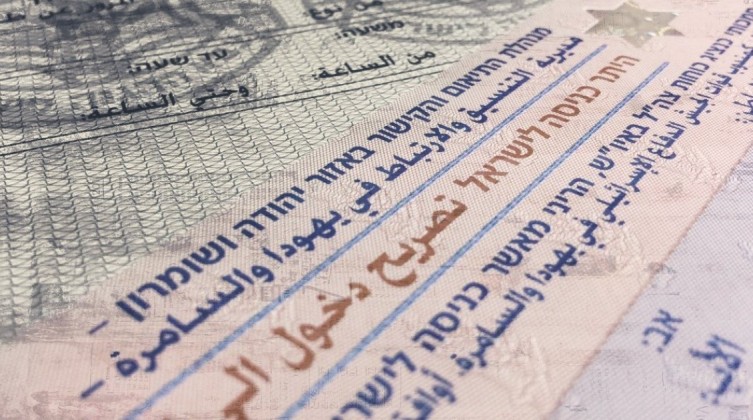 עד שעה:
משעה:
من الساعة:
وحتى الساعة:
מנהלת התיאום והקישור באזור יהודה ושומרון -
مديرية التنسيق والارتباط في يهودا والسامرة -
היתר כניסה לישראל تصريح دخول الى
כוחות צה"ל באיו"ש, הריני מאשר כניסה לישר
الدفاع الإسرائيلي في يهودا والسامرة.
אב:
الأب: